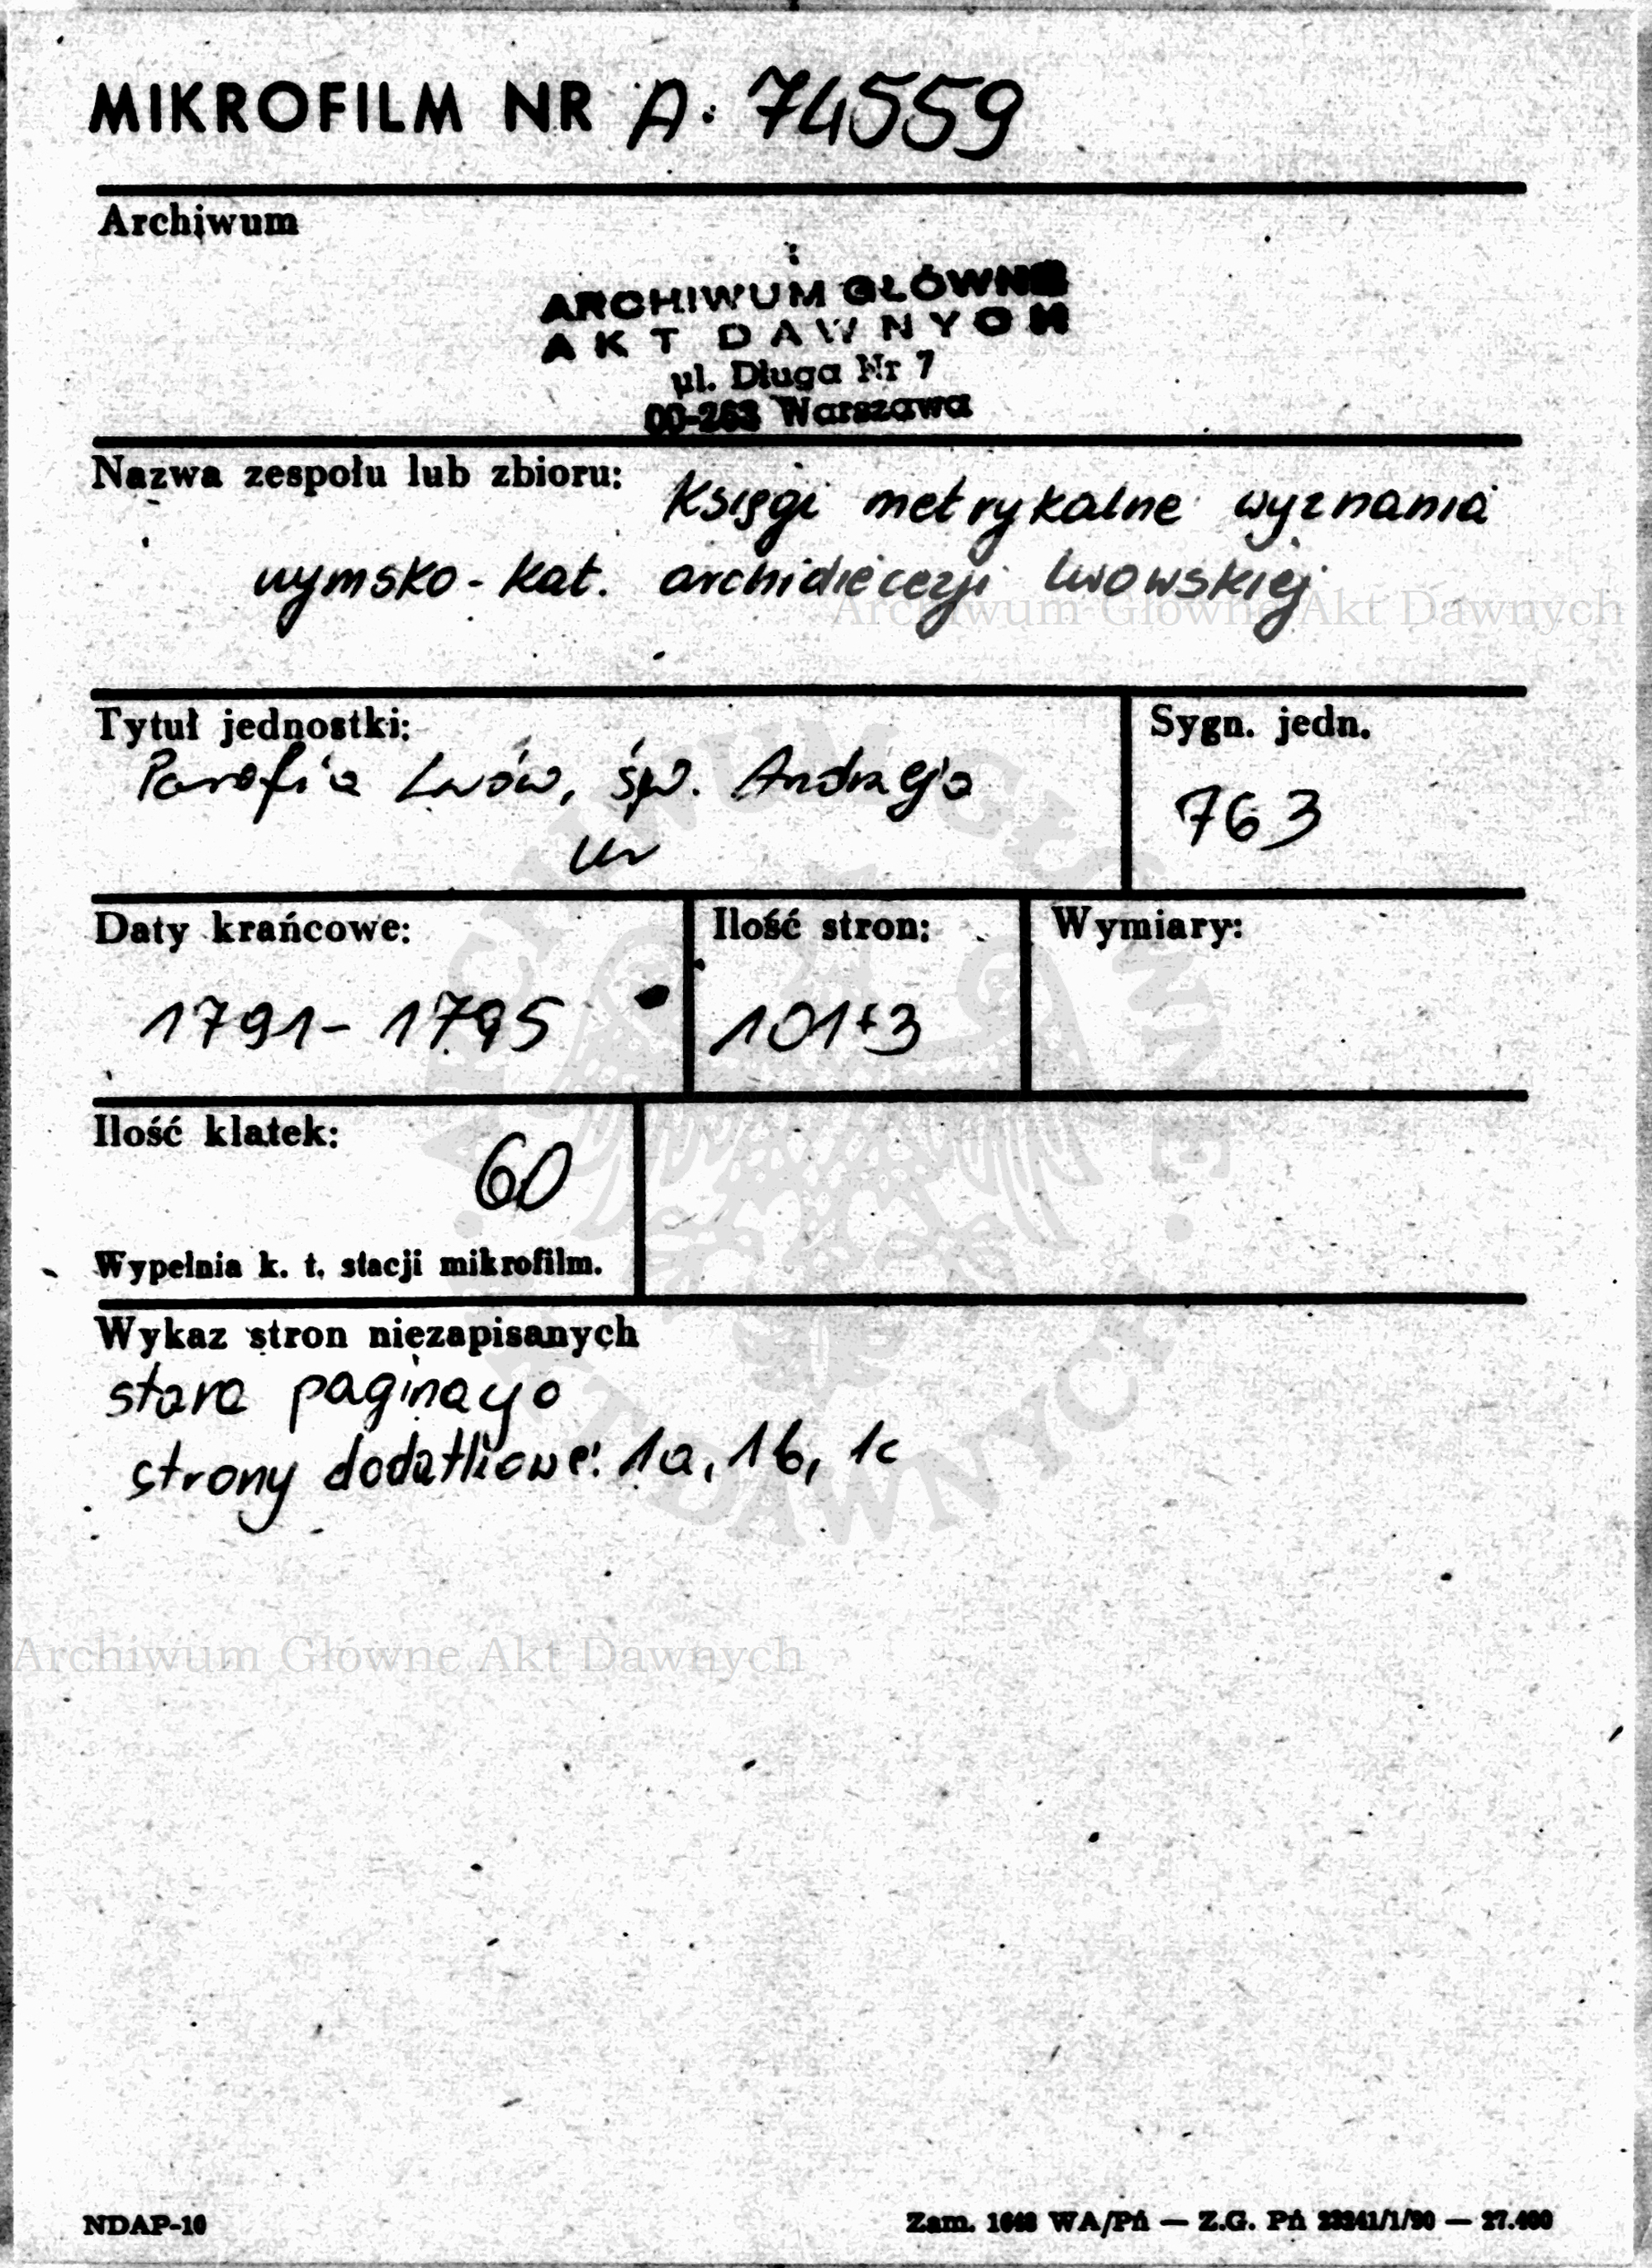 MIKROFILM NR A. 74559
Archiwum
ARCHIWUM GŁÓWNE
AKT DAWNYCH
ul. Długa Nr 7
00-263 Warszawa
Nazwa zespołu lub zbioru: Księgi metrykalne wyznania
rzymsko-kat. archidiecezji lwowskiej
Archiwum Głowne Akt Dawnych
Tytuł jednostki:
Sygn. jedn.
Parafia Lwów, św. Andrzeja
ur
763
Daty krańcowe:
Ilość stron:
Wymiary:
1791-1795
101+3
Ilość klatek:
60
Wypełnia k. t. stacji mikrofilm.
Wykaz stron niezapisanych
stara paginacja
strony dodatkowe: 1a, 1b, 1c
ARCHIWUM GŁÓWNE
AKT DAWNYCH
Archiwum Głowne Akt Dawnych
NDAP-10
Zam. 1648 WA/Pń — Z.G. Pń 23241/1/90 — 27.400